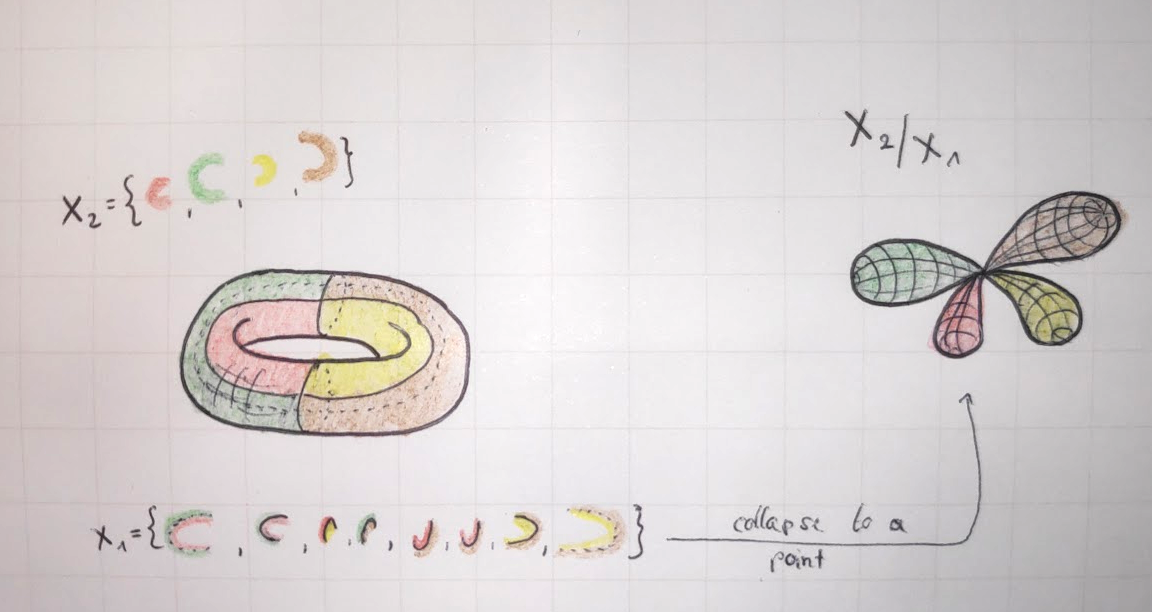 X₂={ , , , }
X₂/X₁
X₁={ , , , , , , , }
collapse to a
point